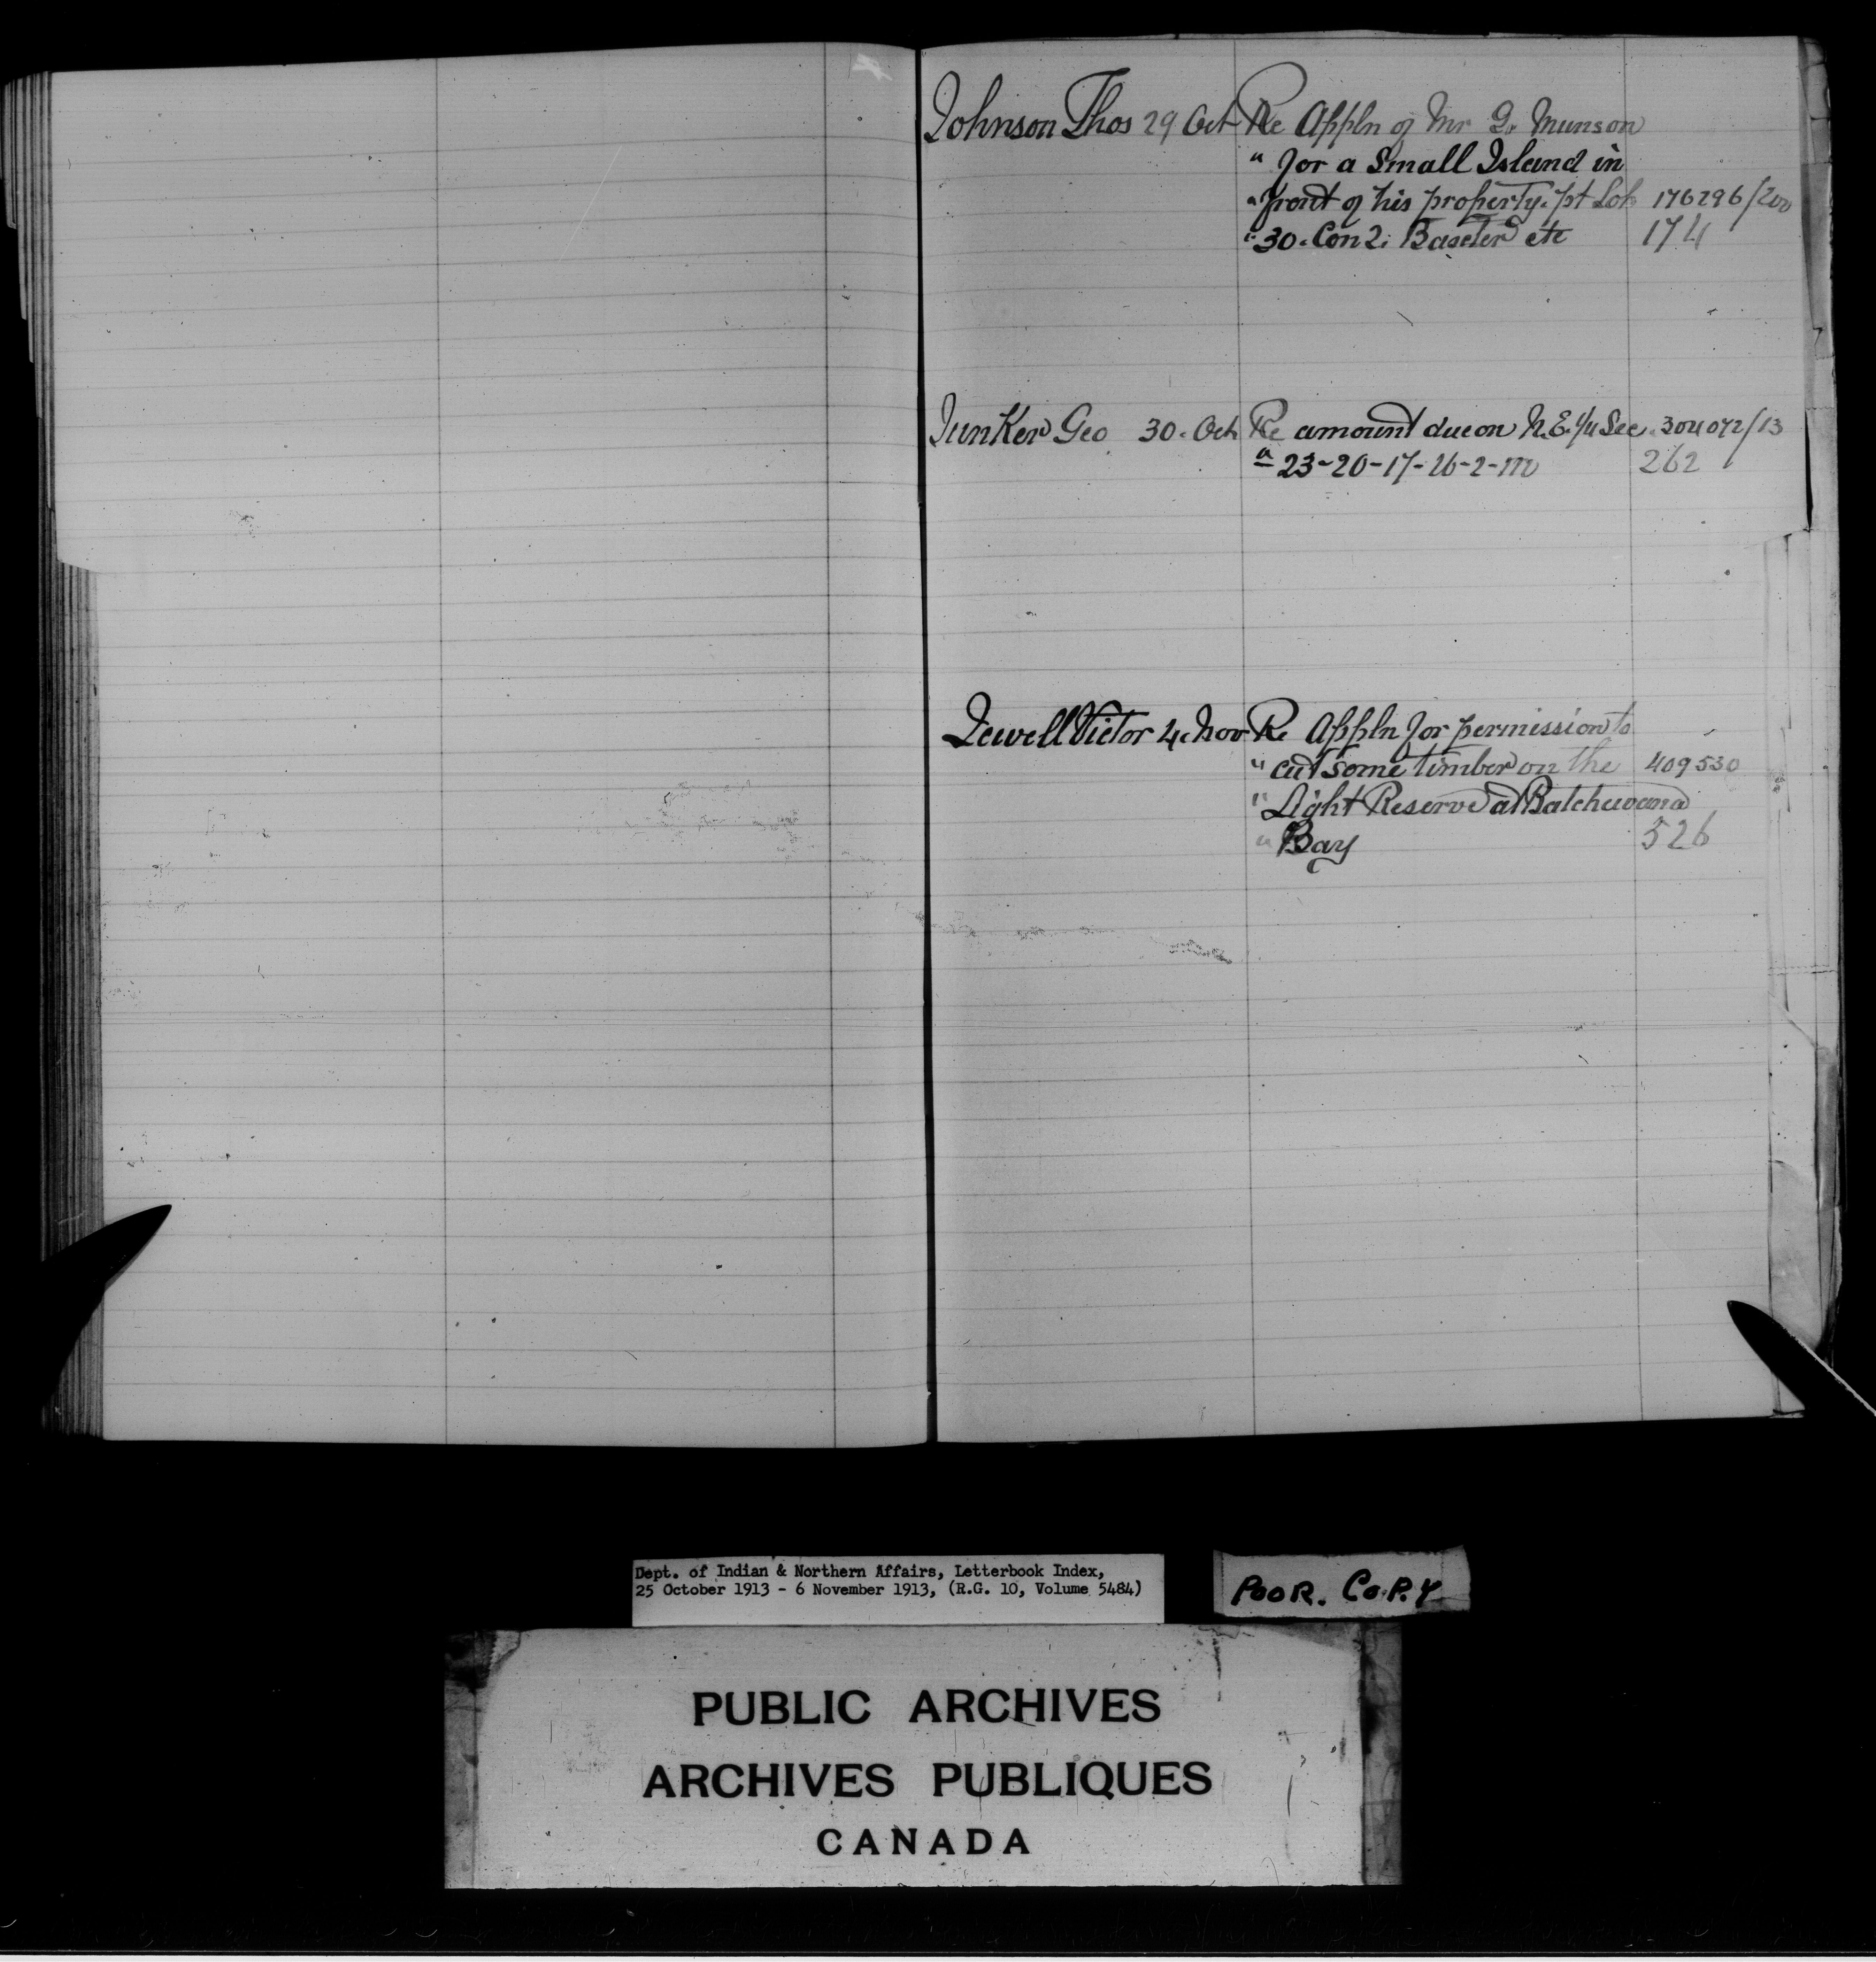 Johnson Thos 29 Oct Re Appln of Mr G. Munson
" for a Small Island in
" front of his property. pt Lot 176296/200
" 30. Con 2. Baxter etc 174
Junker Geo 30. Oct Re amount due on N.E. 1/4 Sec. 304072/13
" 23-20-17-26-2-m 262
Jewell Victor 4. Nov Re Appln for permission to
" cut some timber on the 409530
" Light Reserve at Batchewana
" Bay 526
Dept. of Indian & Northern Affairs, Letterbook Index,
25 October 1913 - 6 November 1913, (R.G. 10, Volume 5484)
POOR. COPY
PUBLIC ARCHIVES
ARCHIVES PUBLIQUES
CANADA